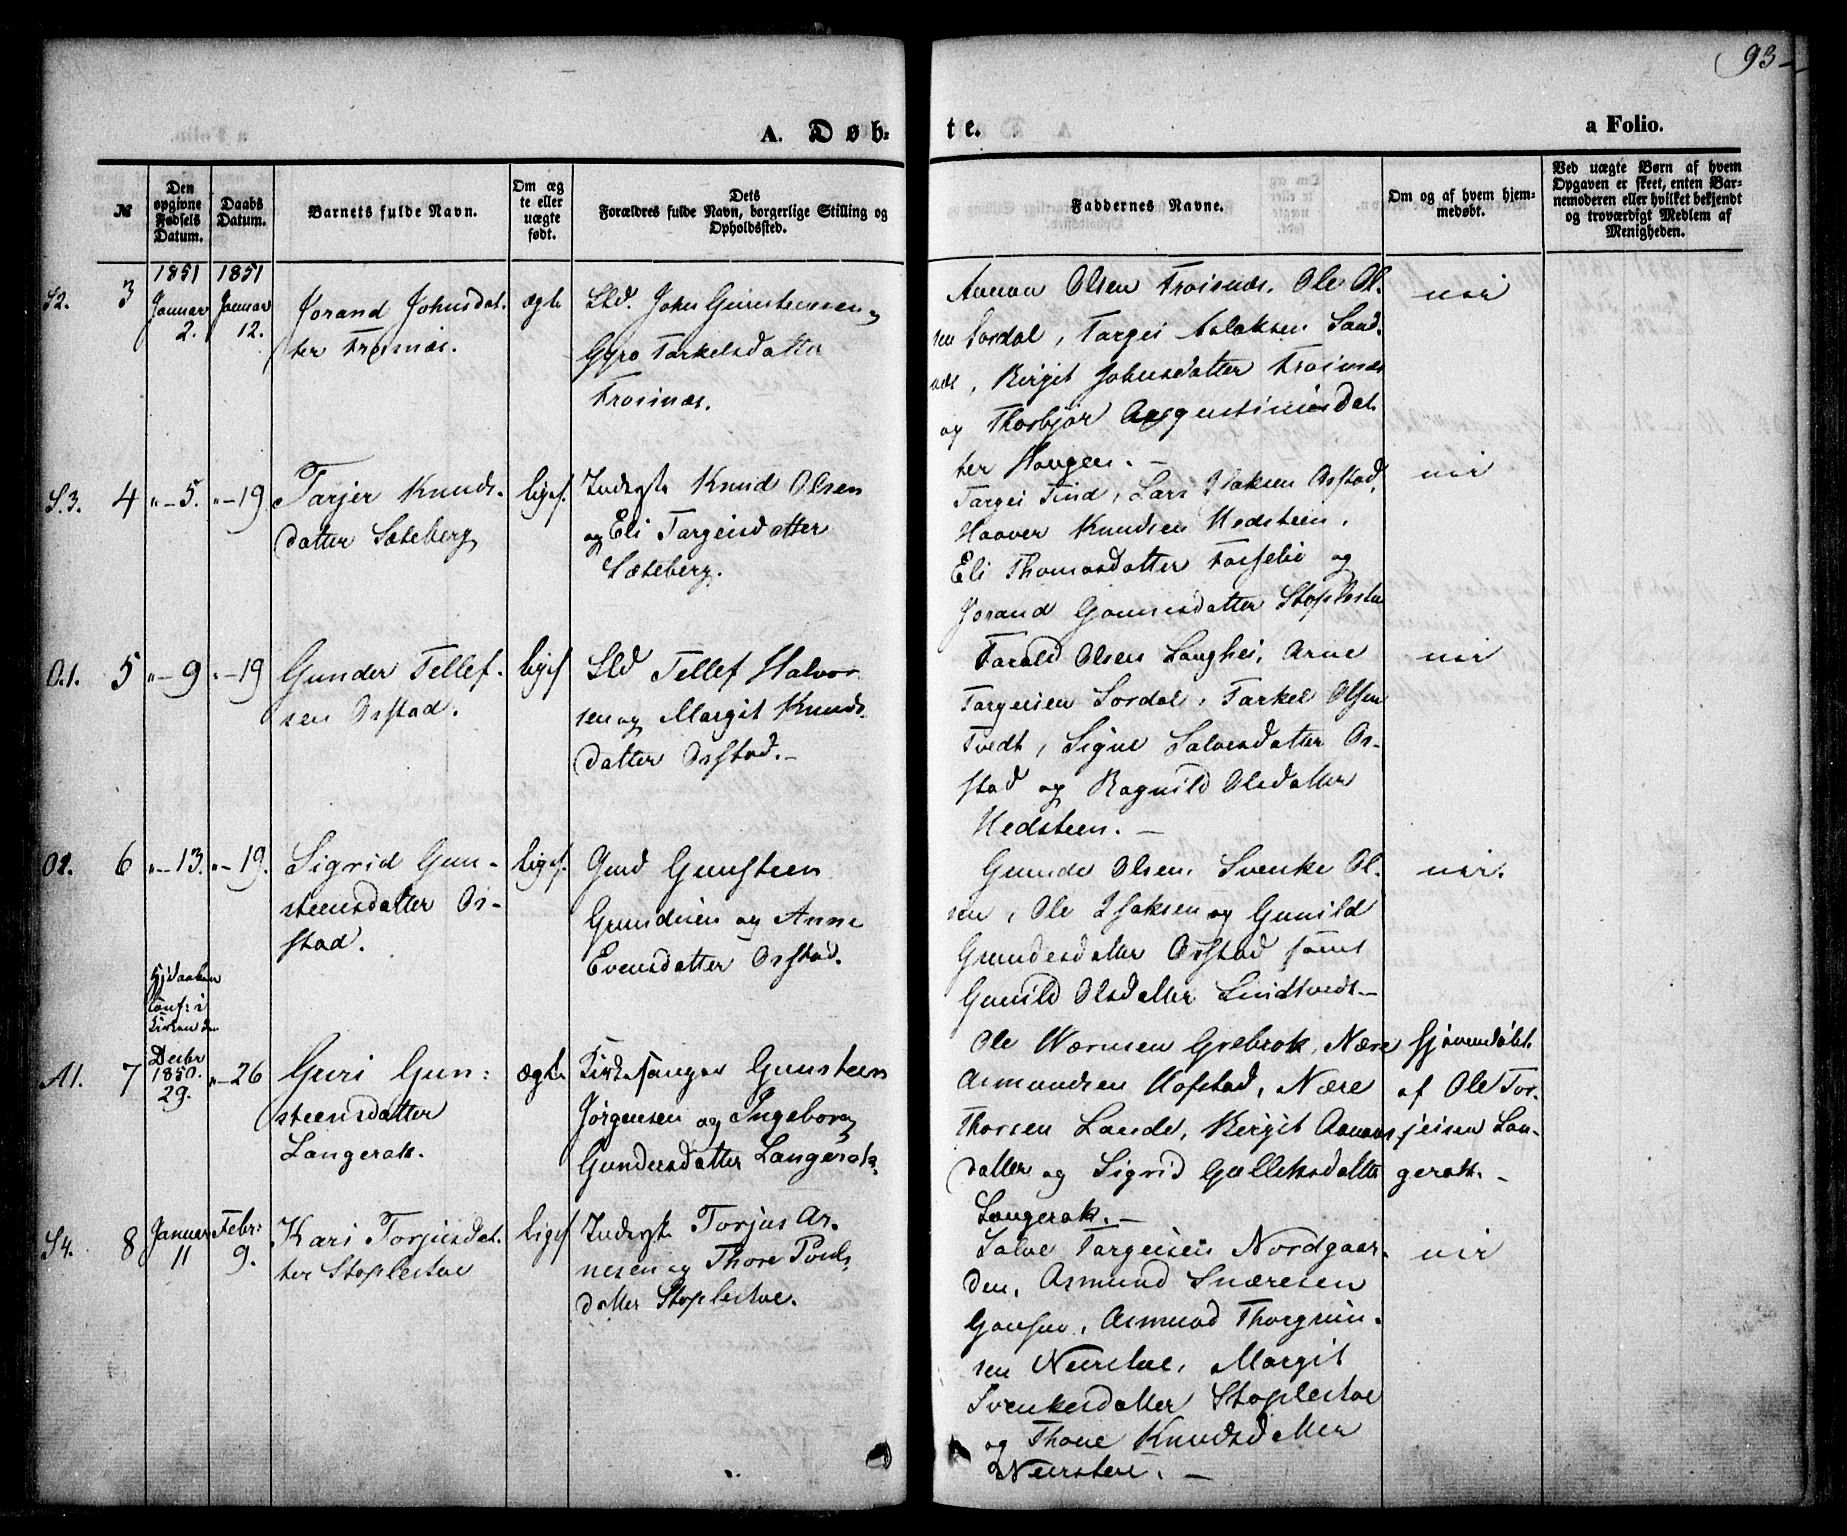 93
A. Døb-
te.
a Folio.
№
Den opgivne Fødsels Datum.
Daabs Datum.
Barnets fulde Navn.
Om æg te eller uægte født.
Dets Forældres fulde Navn, borgerlige Stilling og Opholdssted.
Faddernes Navne.
Om og af hvem hjem-
medøbt.
Ved uægte Børn af hvem
Opgaven er skeet, enten Bar-
nemoderen eller hvilket bekjendt
og troværdigt Medlem af
Menigheden.
S2.
3
1851
Januar
2.
1851
Januar
12.
Jorand Johnsdat-
ter Frøisnæs.
ægte
Sld. John Gunsteensen
Gyro Tarkelsdatter
Froisnæs.
Aanon Olsen Froisnæs, Ole Ol-
sen Sordal, Targei Aslaksen Sand-
næs, Birgit Johnsdatter Froisnæs
og Thorbjør Augustinusdat
ter Haugen. –
nei
S.3.
4
" – 5.
" – 19
Tarjer Knuds-
datter Sæteberg
liges.
Inderste Knud Olsen
og Eli Targeisdatter
Sæteberg.
Targei Tind, Lars Isaksen Osstad,
Haaver Knudsen Hedsteen,
Eli Thomasdatter
og
Jorand Gunnersdatter Stoplestoe
nei
O.1.
5
" – 9
" – 19
Gunder Tellef-
sen Osstad.
ligesf
Sld Tellef Halvor
sen og Margit Knuds-
datter Osstad. –
Tarald Olsen Langhei, Arne
Targeisen Sordal, Tarkel Olsen
Tvedt, Signe Salvesdatter Os-
stad og Ragnild Olsdatter
Hedsteen. –
nei
O2.
6
" – 13.
" – 19.
Sigrid Gun-
steensdatter Os-
stad.
ligesf.
Gmd Gunsteen
Gundersen og Anne
Evensdatter Osstad.
Gunde Olsen, Svenke Ol-
sen, Ole Isaksen og Gunild
Gundesdatter Osstad samt
Gunild Olsdatter Lindtvedt –
nei.
A1.
7
Hjdaaben
Conf: i
Kirken den
Decbr
1850.
29.
" – 26
Guri Gun-
steensdatter
Langerak.
ægte
Kirkesanger Gunsteen
Jørgensen og Ingeborg
Gundersdatter Langerak
Ole Wærmsen Grebrok, Nære
Asmundsen Hofstad, Nære
Thorsen Lande, Birgit Aanons
datter og Sigrid Gulleksdatter
Langerak. –
hjemmedøbt
af Ole Tor-
jeisen Lan-
gerak. –
S4.
8
Januar
11
Febr:
9.
Kari Torjusdat-
ter Stoplestoe
ligesf
Inderste Torjus Ar-
nesen og Thore Pouls-
datter Stoplestoe.
Salve Targeisen Nordgaar-
den, Asmund Snæresen
Asmund Thorgrim-
sen Neerstoe, Margit
Svenkesdatter Stoplestoe
og Thone Knudsdatter
Neerstoe. –
nei